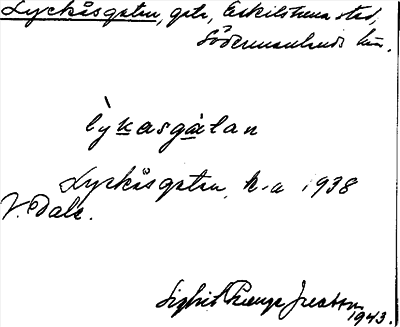 Lyckåsgatan, gata, Eskilstuna stad,
Södermanlands län.
lỳkasgàtan
Lyckåsgatan, k-a 1938
V. Dale.
Sigfrid
1943.